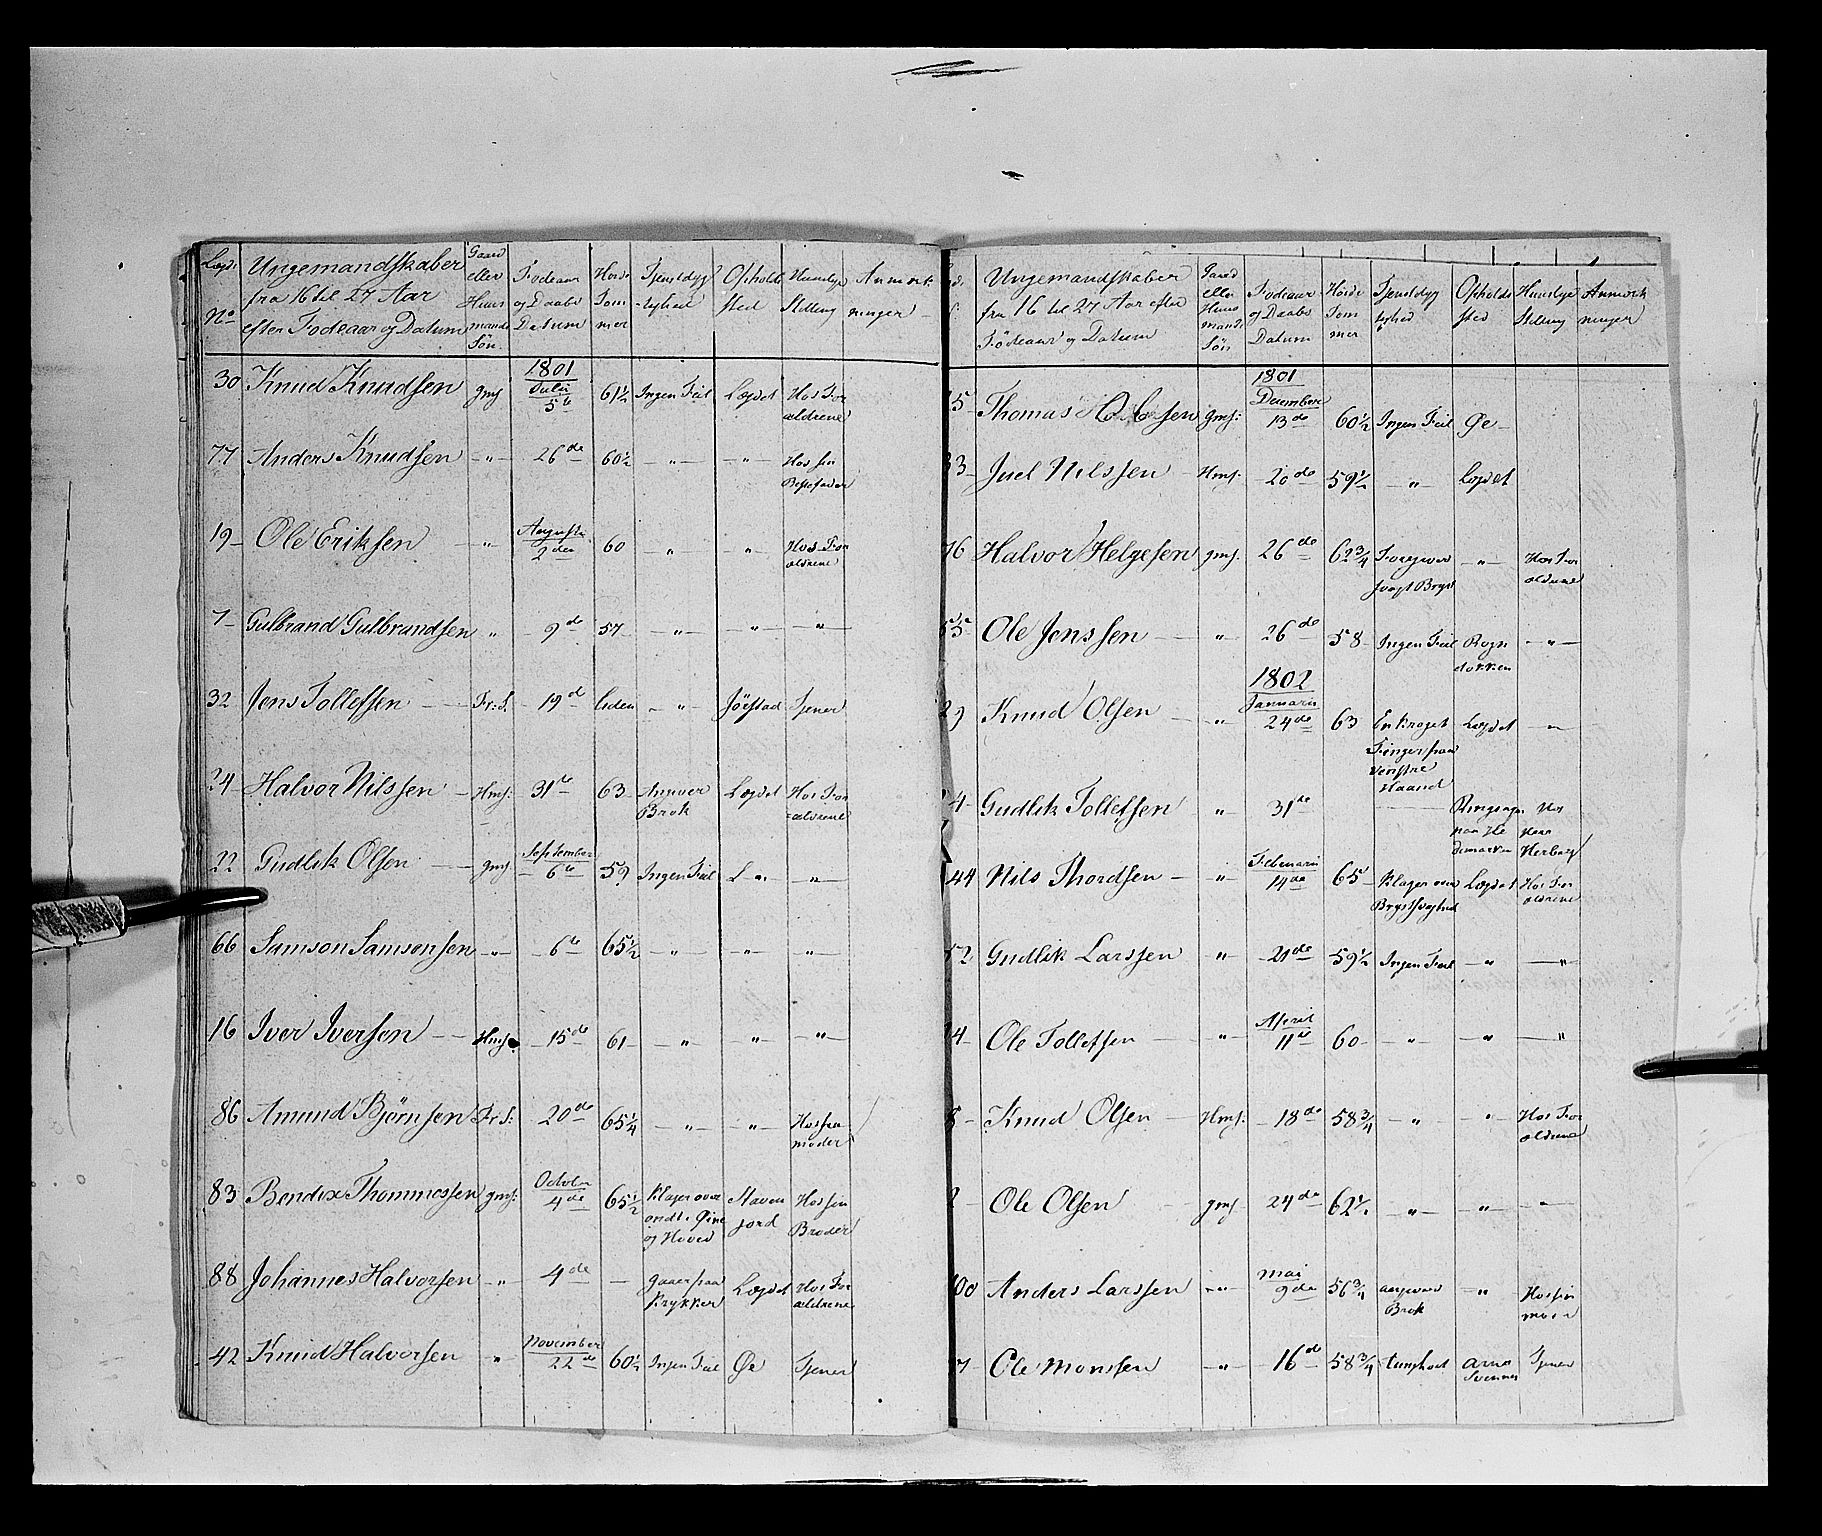 Lægds No | Ungemandskaber fra 16 til 27 Aar efter Fødeaar og Datum | Gaard eller Huus mands Søn. | Fødeaar og Daabs Datum | Høide Tom mer | Tjenstdyg -tighed | Opholds sted | Huuslige Stilling | Anmærk ninger
30 | Knud Knudsen | gms | 1801 Julii 5te | 61½ | Ingen Feil | Lægdet | Hos For ældrene
77 | Anders Knudsen | -„- | 26de | 60½ | -„- | -„- | Hos sin Bestefader
19 | Ole Eriksen | „ | Augusti 2den | 60 | -„- | -„- | Hos For ældrene
7 | Gulbrand Gulbrandsen | „ | 9de | 57 | -„- | -„- | -„-
32 | Jens Tollefsen | Fr: S. | 19de | liden | -„- | Jöestad | Tjener
24 | Halvor Nilssen | Hms: | 31te | 63 | Angiver Brok | Lægdet | Hos For =ældrene
22 | Gudlik Olsen | gms | September 6te | 59 | Ingen Feil | L„- | -„-
66 | Samson Samsonsen | -„- | 6te | 65½ | -„- | -„- | -„-
16 | Iver Iversen | Hms. | 15de | 61 | -„- | -„- | „
86 | Amund Bjørnsen | Fr: S: | 20de | 65¼ | -„- | -„- | Hos sin moder
83 | Bendix Thommessen | gms: | October 4de | 65½ | klager over ondt i Øine og Hoved | Staven jord | Hos sin Broder
88 | Johannes Halvorsen | -„- | 4de | — | gaaer paa Krykker | Lægdet | Hos For ældrene
42 | Knud Halvorsen | „ | November 22de | 60½ | Ingen Feil | Øe | Tjener
Ungemandskaber fra 16 til 27 Aar efter Fødeaar og Datum | Gaard eller Huus mands Søn | Fødeaar og Daabs Datum | Høide Tom mer | Tjenstdyg tighed | Opholds sted | Huuslige Stilling | Anmærk ninger
5 | Thomas Olsen | gms: | 1801 December 13de | 60½ | Ingen Feil | Øe
33 | Juel Nilssen | Hms: | 20de | 59½ | -„- | Lægdet
76 | Halvor Helgesen | gms. | 26de | 62¾ | Foregiver svagt Bryst | -„- | Hos For ældrene
55 | Ole Jenssen | „ | 26de | 58 | Ingen Feil | Rogn dokken | -„-
29 | Knud Olsen | „ | 1802 Januarii 24de | 63 | En kroget Finger paa venstre Haand | Lægdet | -„-
4 | Gudlik Tollefsen | „ | 31te | Ringsager paa He demarken | Hos Herberg
44 | Nils Thordsen | „ | Februarii 14de | 65 | Klager over Brystsvaghed | Lægdet | Hos For ældrene
52 | Gudlik Larssen | „ | 21de | 59½ | Ingen Feil | -„- | -„-
4 | Ole Tollefsen | „ | April 11te | 60 | -„- | -„- | -„-
8 | Knud Olsen | Hms: | 18de | 58¾ | -„- | -„- | Hos For ældrene
2 | Ole Olsen | gms. | 24de | 62½ | -„- | -„- | -„-
100 | Anders Larssen | -„- | Mai 9de | 56¾ | angiver Brok | -„- | Hos sin moder
7 | Ole Monssen | -„- | 16de | 58¾ | tunghørt | Tjener